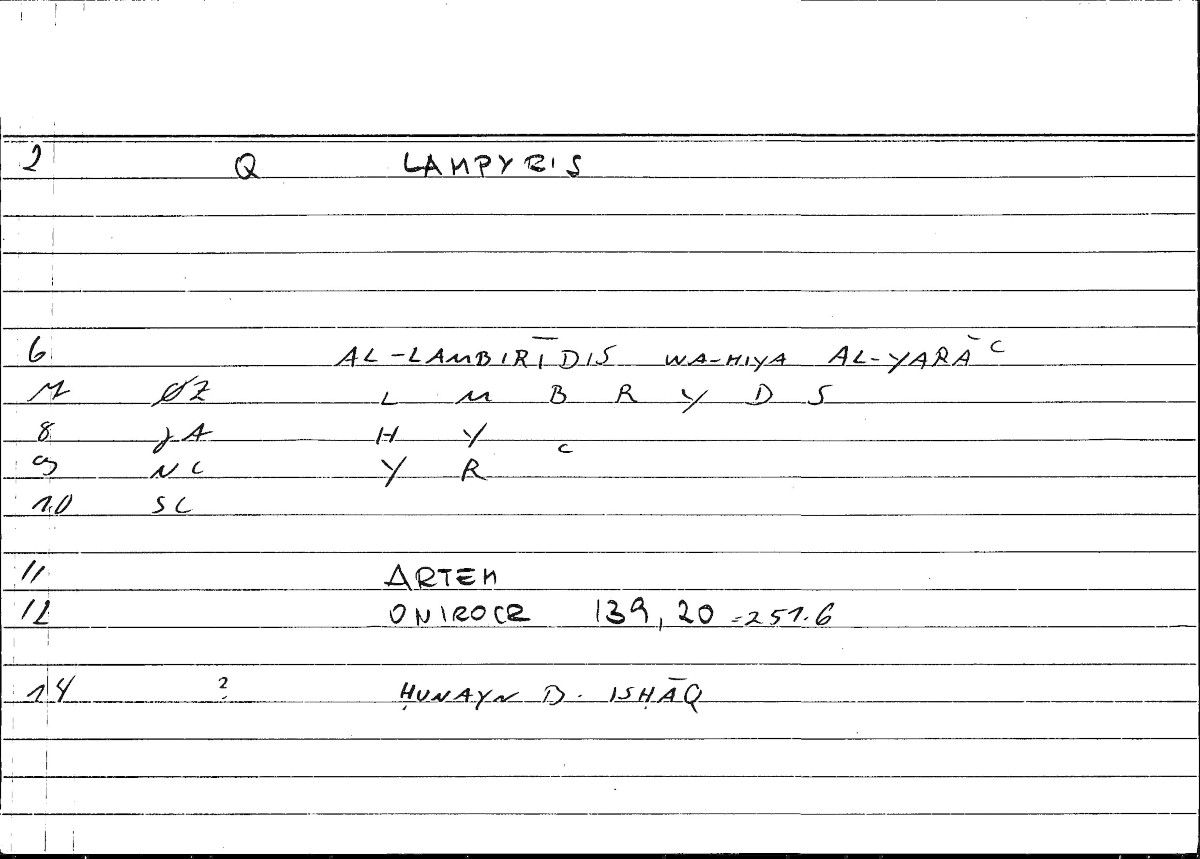 2 Q LAMPYRIS
6 AL-LAMBIRĪDIS WA-HIYA AL-YARĀC
7 ØZ L M B R Y D S
8 JA H Y
9 NC Y R C
10 SC
11 ARTEM
12 ONIROCR 139, 20 = 251.6
14 ? ḤUNAYN B. ISḤĀQ